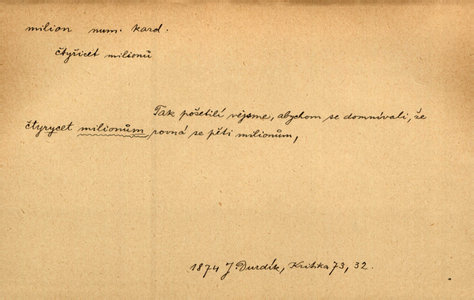 milion num. kard.
čtyřicet milionů
Tak pošetilí nejsme, abychom se domnívali, že
čtyrycet milionům rovná se pěti milionům,
1874 J Durdík, Kritika 73, 32.